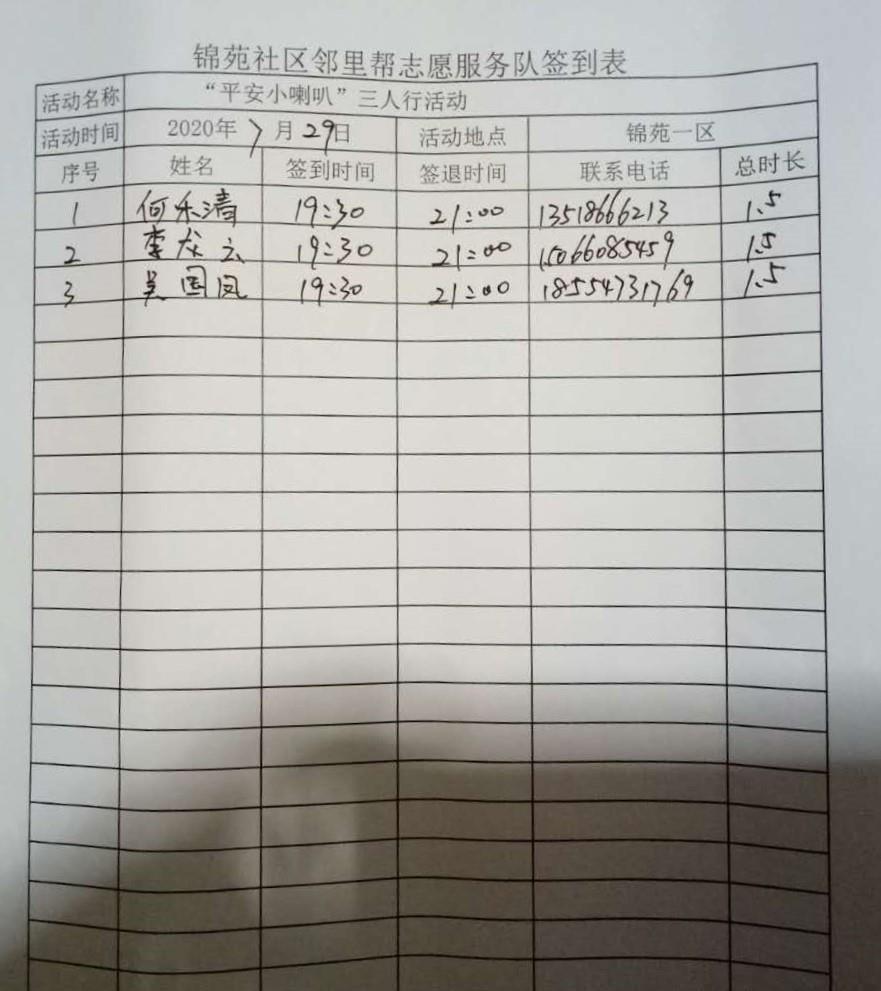 锦苑社区邻里帮志愿服务队签到表
活动名称 “平安小喇叭”三人行活动
活动时间 2020年7月29日 活动地点 锦苑一区
序号 姓名 签到时间 签退时间 联系电话 总时长
1 何乐清 19:30 21:00 13518666213 1.5
2 李龙云 19:30 21:00 15066085459 1.5
3 吴国凤 19:30 21:00 18554731769 1.5